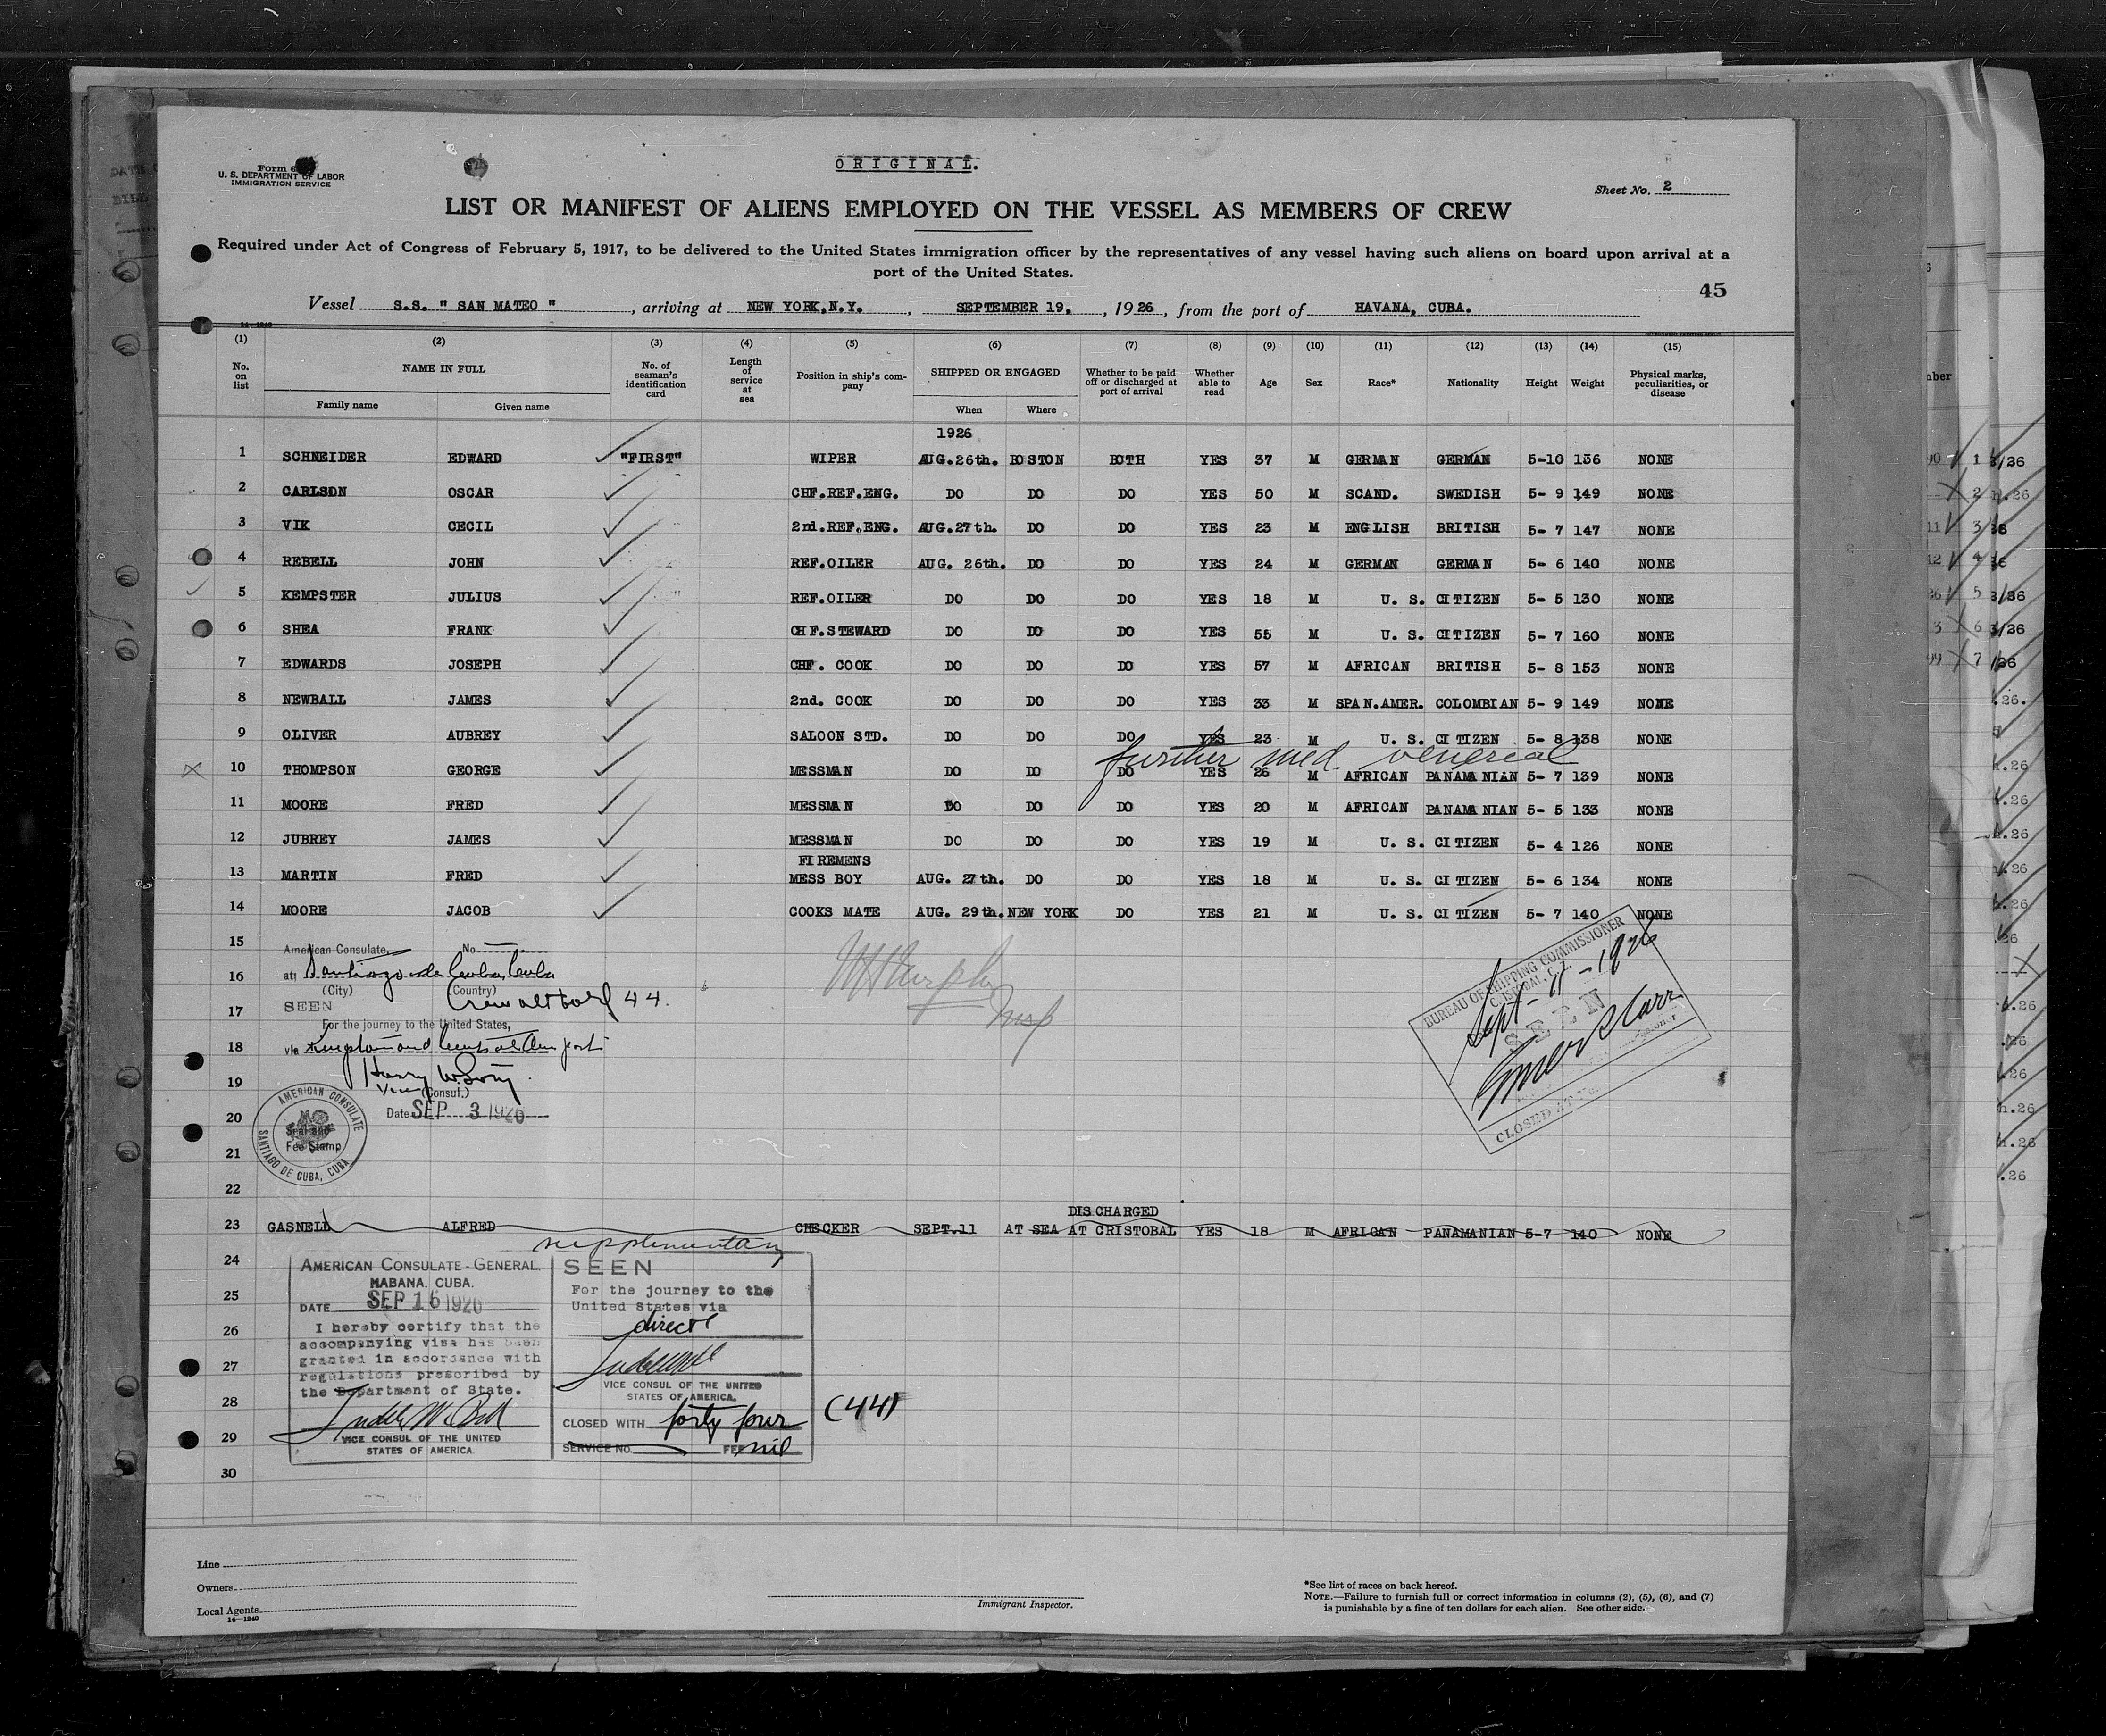 ORIGINAL.
U. S. DEPARTMENT OF LABOR
IMMIGRATION SERVICE
Sheet No. 2
LIST OR MANIFEST OF ALIENS EMPLOYED ON THE VESSEL AS MEMBERS OF CREW
Required under Act of Congress of February 5, 1917, to be delivered to the United States immigration officer by the representatives of any vessel having such aliens on board upon arrival at a
port of the United States.
45
Vessel S.S. " SAN MATEO ", arriving at NEW YORK,N.Y., SEPTEMBER 19, 1926, from the port of HAVANA, CUBA.
14—1240
(1) (2) (3) (4) (5) (6) (7) (8) (9) (10) (11) (12) (13) (14) (15)
No. on list NAME IN FULL Family name Given name No. of seaman's identification card Length of service at sea Position in ship's company SHIPPED OR ENGAGED When Where Whether to be paid off or discharged at port of arrival Whether able to read Age Sex Race* Nationality Height Weight Physical marks, peculiarities, or disease
1926
1 SCHNEIDER EDWARD "FIRST" WIPER AUG.26th. BOSTON BOTH YES 37 M GERMAN GERMAN 5-10 136 NONE
2 CARLSON OSCAR CHF.REF.ENG. DO DO DO YES 50 M SCAND. SWEDISH 5- 9 149 NONE
3 VIK CECIL 2nd.REF.ENG. AUG.27th. DO DO YES 23 M ENGLISH BRITISH 5- 7 147 NONE
4 REBELL JOHN REF.OILER AUG. 26th. DO DO YES 24 M GERMAN GERMAN 5- 6 140 NONE
5 KEMPSTER JULIUS REF.OILER DO DO DO YES 18 M U. S. CITIZEN 5- 5 130 NONE
6 SHEA FRANK CHF.STEWARD DO DO DO YES 55 M U. S. CITIZEN 5- 7 160 NONE
7 EDWARDS JOSEPH CHF. COOK DO DO DO YES 57 M AFRICAN BRITISH 5- 8 153 NONE
8 NEWBALL JAMES 2nd. COOK DO DO DO YES 33 M SPAN.AMER. COLOMBIAN 5- 9 149 NONE
9 OLIVER AUBREY SALOON STD. DO DO DO YES 23 M U. S. CITIZEN 5- 8 138 NONE
further med. venereal
10 THOMPSON GEORGE MESSMAN DO DO DO YES 26 M AFRICAN PANAMANIAN 5- 7 139 NONE
11 MOORE FRED MESSMAN DO DO DO YES 20 M AFRICAN PANAMANIAN 5- 5 133 NONE
12 JUBREY JAMES MESSMAN DO DO DO YES 19 M U. S. CITIZEN 5- 4 126 NONE
FIREMENS
13 MARTIN FRED MESS BOY AUG. 27th. DO DO YES 18 M U. S. CITIZEN 5- 6 134 NONE
14 MOORE JACOB COOKS MATE AUG. 29th. NEW YORK DO YES 21 M U. S. CITIZEN 5- 7 140 NONE
15
American Consulate, No
16
at Santiago de Cuba, Cuba
(City) (Country)
SEEN
44.
17
For the journey to the United States,
18
via Kingston and
19
Vice (Consul.)
Date SEP 3 1926
20
AMERICAN CONSULATE
SANTIAGO DE CUBA, CUBA
Fee Stamp
21
22
BUREAU OF SHIPPING COMMISSIONER
CRISTOBAL, C. Z.
Sept-11-1926
SEEN
CLOSED AT
DISCHARGED
23 GASNELL ALFRED CHECKER SEPT.11 AT SEA AT CRISTOBAL YES 18 M AFRICAN PANAMANIAN 5-7 140 NONE
supplementary
24
AMERICAN CONSULATE-GENERAL.
HABANA, CUBA.
DATE SEP 16 1926
I hereby certify that the
accompanying visa has been
granted in accordance with
regulations prescribed by
the Department of State.
VICE CONSUL OF THE UNITED
STATES OF AMERICA.
SEEN
For the journey to the
United States via
direct
VICE CONSUL OF THE UNITED
STATES OF AMERICA.
CLOSED WITH forty four (44)
SERVICE No. FEE nil
25
26
27
28
29
30
Line
Owners
Local Agents
14—1240
Immigrant Inspector.
*See list of races on back hereof.
NOTE.—Failure to furnish full or correct information in columns (2), (5), (6), and (7)
is punishable by a fine of ten dollars for each alien. See other side.